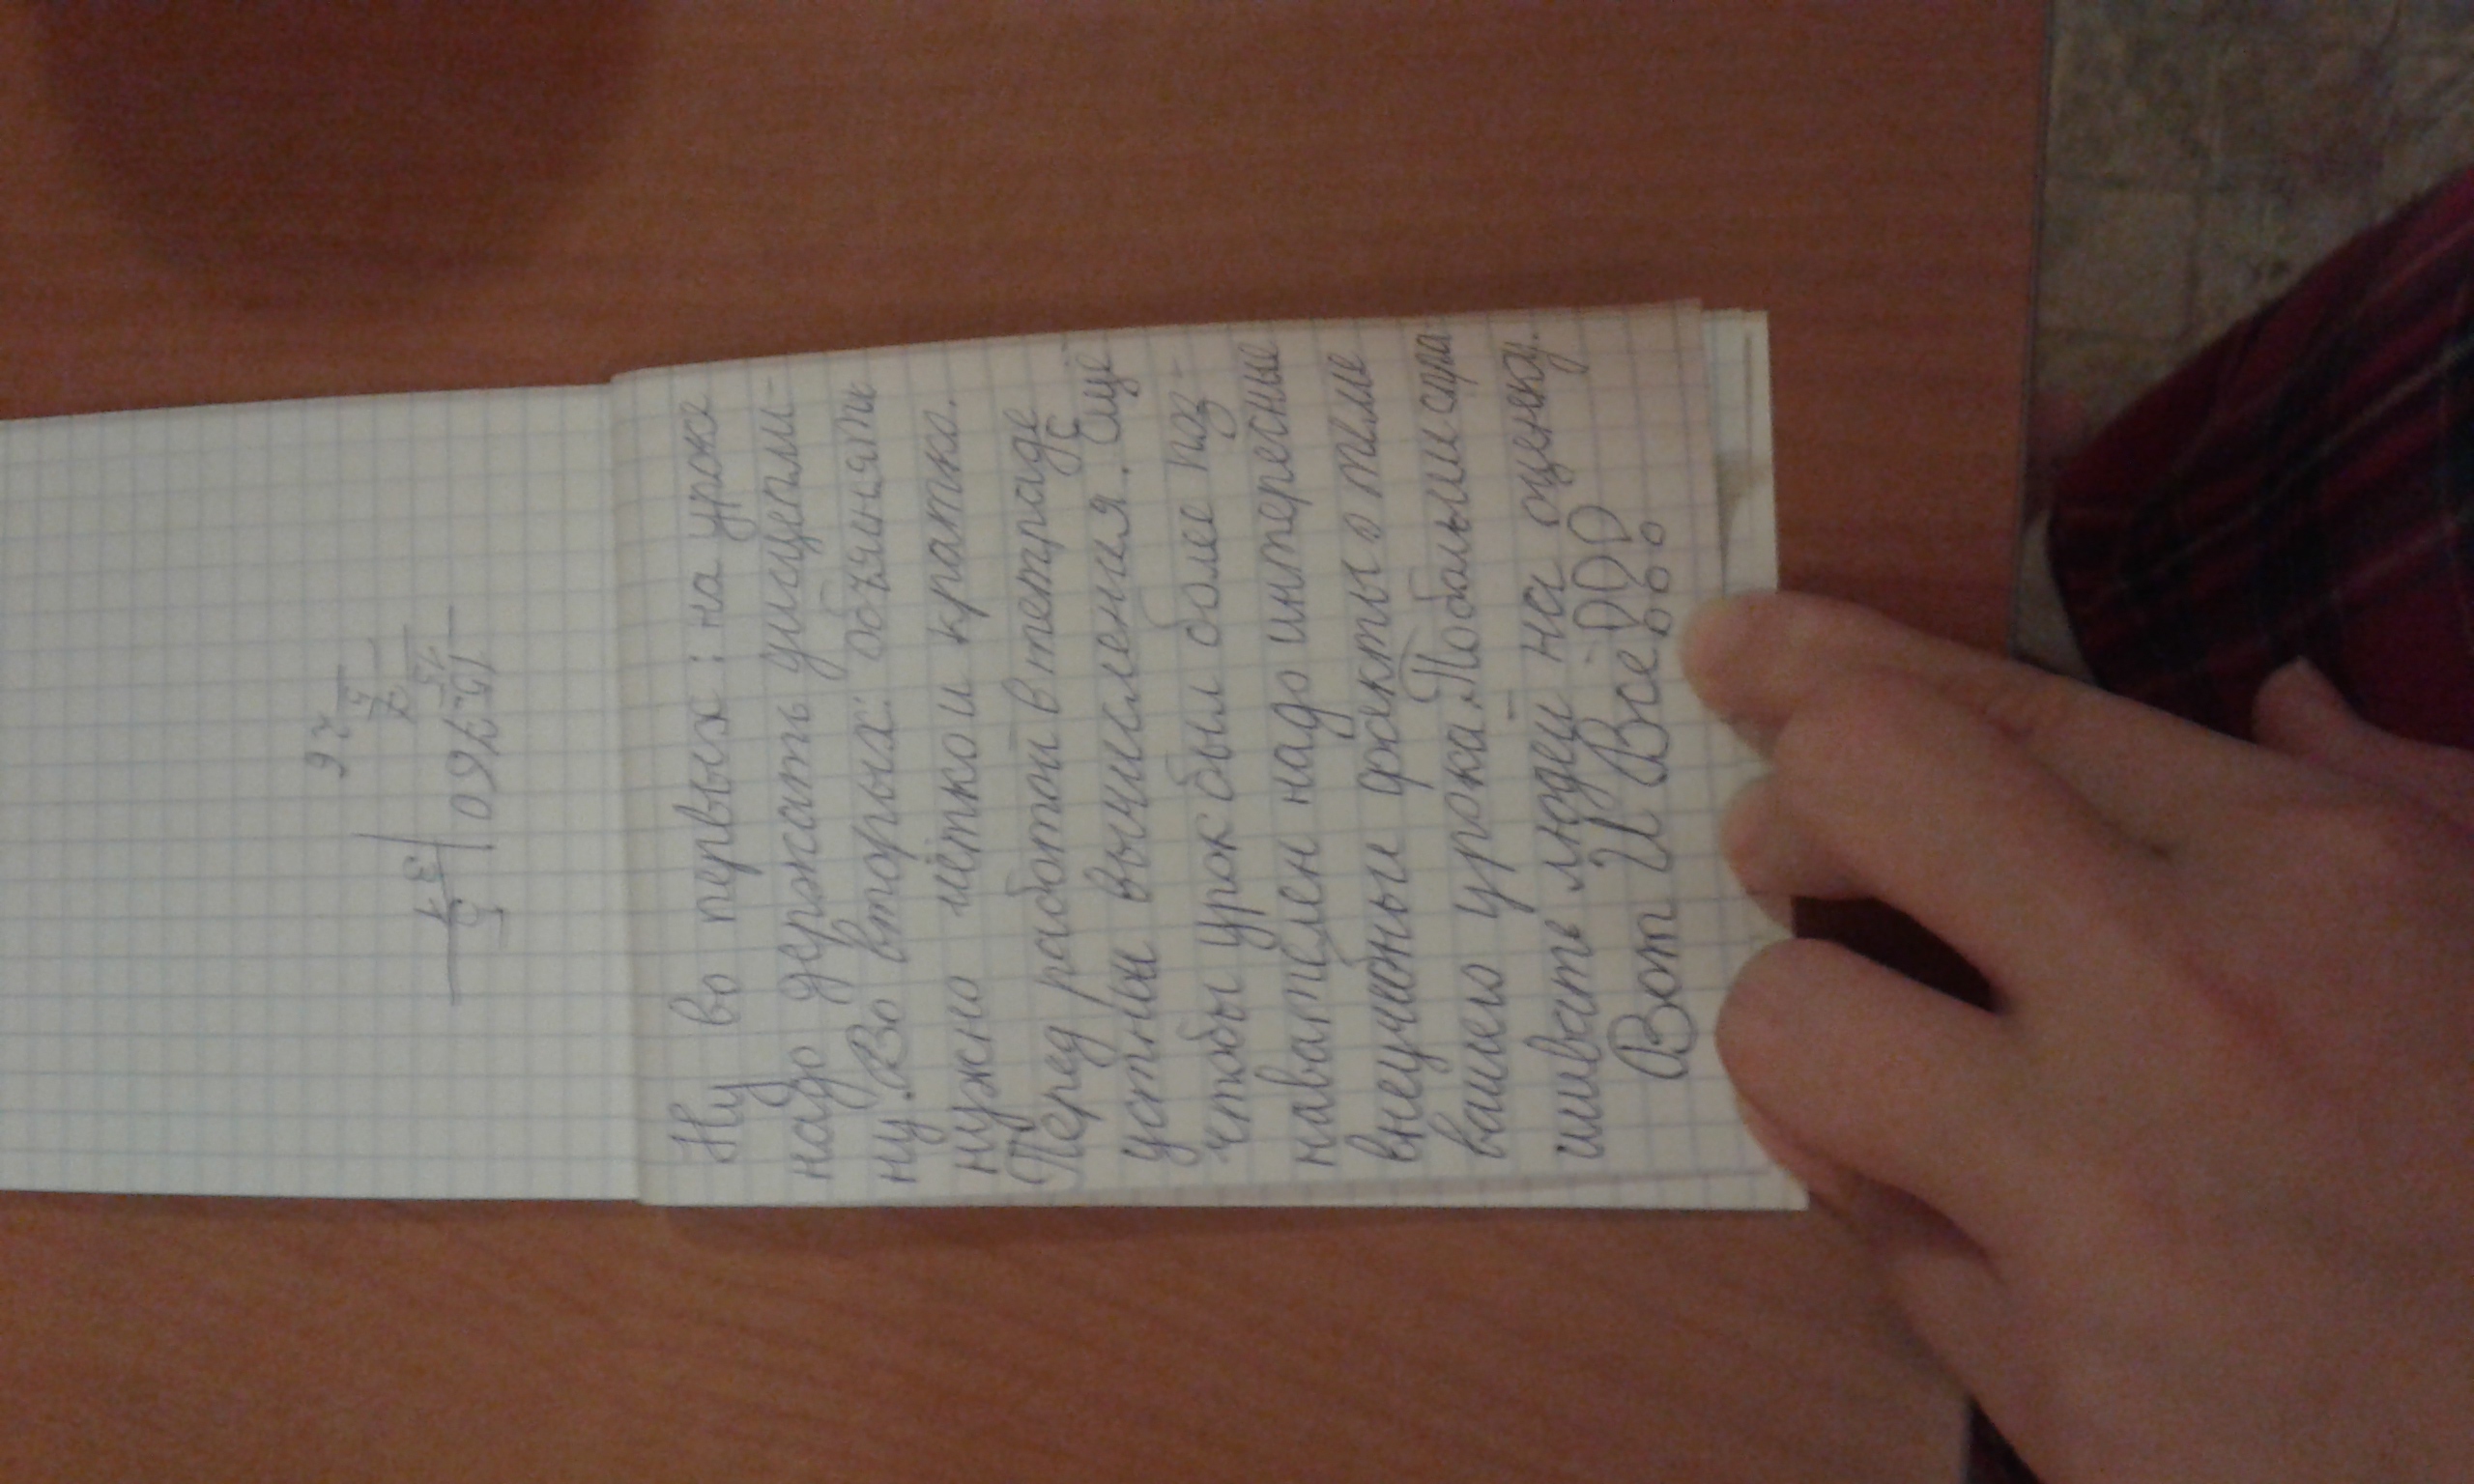 Ну во первых: на уроке
надо держать дисцепли-
ну. Во вторых: объяснять
нужно чётко и кратко.
Перед работой в тетраде
устные вычисления. Ещё
чтобы урок был более поз-
навателен надо интересные
внеучебные факты о теме
вашего урока. Побольше спра
шивать людей на оценку.
Вот И Всё!!!